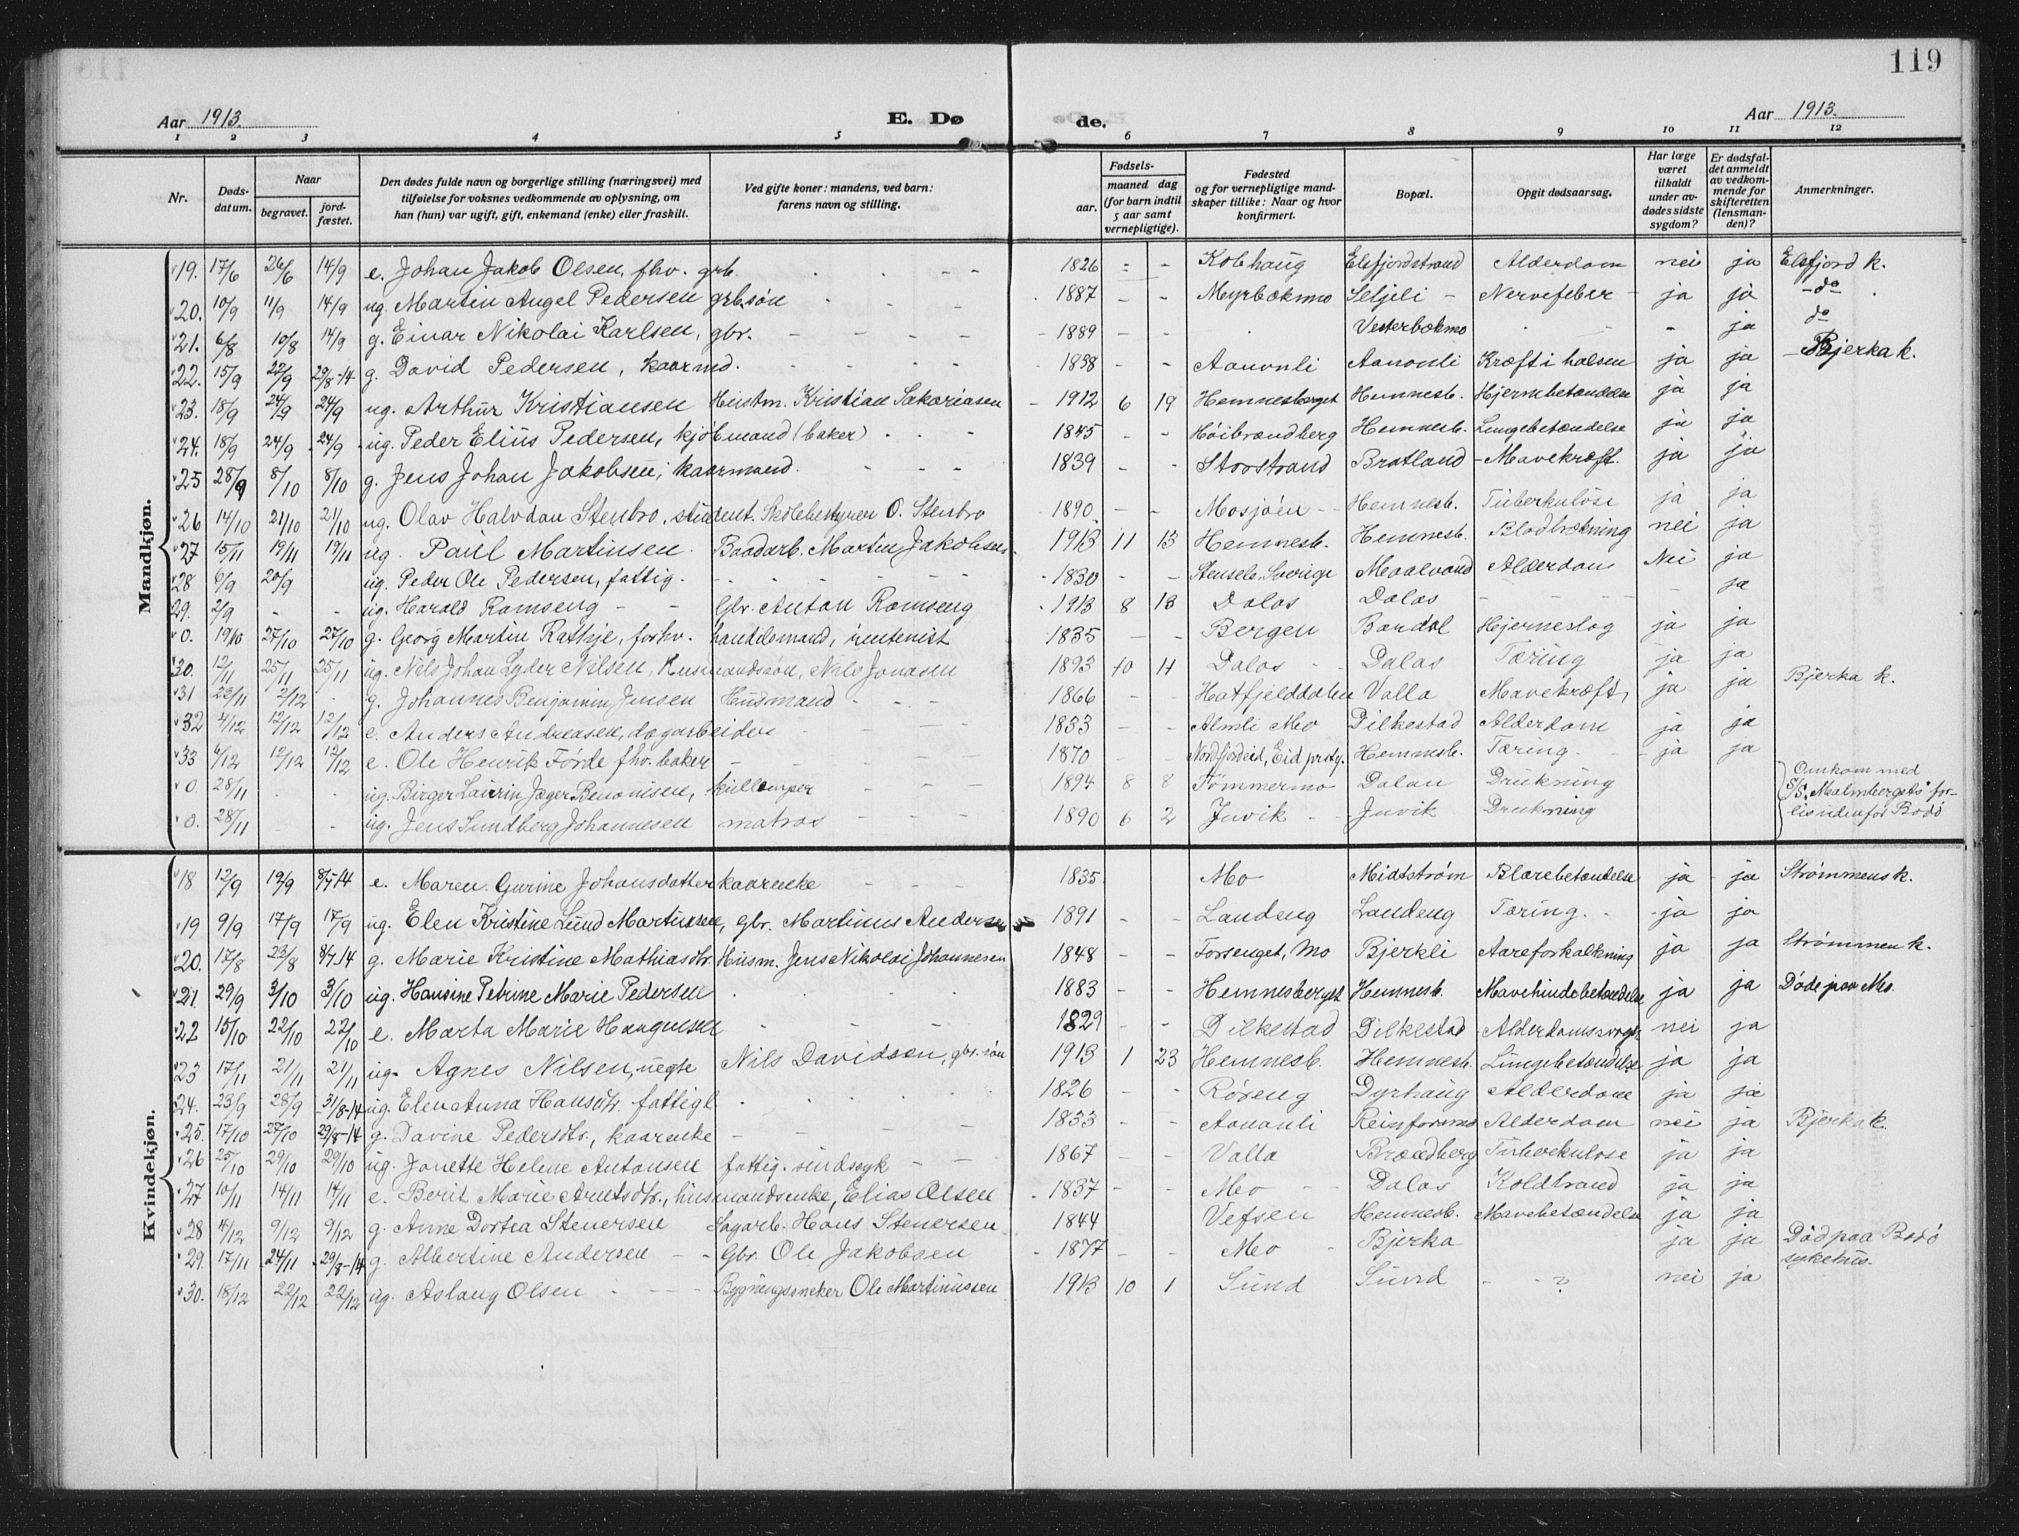 119
Aar 1913. E. Dø de. Aar 1913.
1 2 3 4 5 6 7 8 9 10 11 12
Nr. Døds-datum. Naar begravet. jord-fæstet. Den dødes fulde navn og borgerlige stilling (næringsvei) med tilføielse for voksnes vedkommende av oplysning, om han (hun) var ugift, gift, enkemand (enke) eller fraskilt. Ved gifte koner: mandens, ved barn: farens navn og stilling. Fødsels- aar. maaned dag (for barn indtil 5 aar samt vernepligtige). Fødested og for vernepligtige mand-skaper tillike: Naar og hvor konfirmert. Bopæl. Opgit dødsaarsag. Har læge været tilkaldt under av-dødes sidste sygdom? Er dødsfal-det anmeldt av vedkom-mende for skifteretten (lensman-den)? Anmerkninger.
Mandkjøn.
19. 17/6 26/6 14/9 e. Johan Jakob Olsen, fhv. grb. - - 1826 - - Kobhaug Elsfjordstrand Alderdom nei ja Elsfjord k.
20. 10/9 11/9 14/9 ug. Martin Angel Pedersen grb.søn - - 1887 - - Myrbækmo Seljeli - Nervefeber - ja ja - do
21. 6/8 10/8 14/9 g. Einar Nikolai Karlsen, gbr. - - - 1889 - - Vesterbækmo - ja do
22. 15/9 22/9 29/8-14 g. David Pedersen, kaarmd. - 1838 - - Aanonli Aanonli Kræft i halsen ja ja Bjerka k.
23. 18/9 24/9 24/9 ug. Arthur Kristiansen Hustm. Kristian Sakariasen - 1912 6 19 Hemnesberget Hemnesb. Hjernebetændelse ja ja
24. 18/9 24/9 24/9 ug. Peder Elius Pedersen, kjøbmand (baker) - 1845 - - Høibrændberg Hemnesb. Lungebetændelse ja ja
25 28/9 8/10 8/10 g. Jens Johan Jakobsen, kaarmand. - - 1839 - - Storstrand Bratland - Mavekræft. ja ja
26 14/10 21/10 21/10 ug. Olav Halvdan Stenbro, student. Skolebestyrer O. Stenbro - 1890 - - Mosjøen - - Hemnesb. Tuberkuløse ja ja
27 15/11 19/11 19/11 ug. Paul Martinsen. Baadarb. Martin Jakobsen. 1913 11 13 Hemnesb. Hemnesb. Blodbrækning nei ja
28 6/9 20/9 ug. Peder Ole Pedersen, fattig. - - - 1830 - - Stensele, Sverige Maalvand Alderdom Nei ja
29. 2/9 - - ug. Harald Ramseng - - Gbr. Anton Ramseng - 1913 8 13 Dalos Dalos - - - - ja
0. 19/10 27/10 27/10 g. Georg Martin Rathje, forhv. handelsmand, rentenist 1835 - - Bergen Bardal Hjerneslag ja ja
30. 12/11 25/11 25/11 ug. Nils Johan Lyder Nilsen, Husmandssøn, Nils Jonasen 1893 10 4 Dalos - - Dalas Tæring ja ja
31 23/11 2/12 . g. Johannes Benjamin Jensen Husmand - - - 1866 - - Hatfjelddalen Valla Mavekræft, ja ja Bjerka k.
32 4/12 12/12 12/12 e. Anders Andreasen, dagarbeider - - 1833 - - Almli Mo Dilkestad Alderdom ja ja
33 6/12 12/12 12/12 e. Ole Henrik Førde fhv. baker - - - 1870 - - Nordfjordeid, Eid prstg. Hemnesb. Tæring. - ja ja
0. 28/11 . . ug. Birger Laurin Jæger Benonisen, kullemper 1894 8 8 Tømmermo Dalan Drukning Omkom med
0. 28/11 - - ug. Jens Sundberg Johannesen matros - - - 1890 6 2 Juvik - - Juvik Drukning S/S. "Malmbergets" for-
lis udenfor Bodø
Kvindekjøn.
18 12/9 19/9 8/7-14 e. Maren Gurine Johansdatter kaarenke - - - 1835. Mo Midtstrøm Blærebetændelse ja - ja Strømmens k.
19 9/9 17/9 17/9 ug. Elen Kristine Lund Martinsen, Gbr. Martinus Andersen 1891 - - Landeng Landeng Tæring. - - ja ja
20. 17/8 23/8 8/7-14 g. Marie Kristine Mathiasdtr. Husm. Jens Nikolai Johannesen 1848 - - Forsenget, Mo Bjerkli Aareforkalkning ja ja Strømmen k.
21 29/9 3/10 3/10 ug. Hansine Petrine Marie Pedersen 1883 - - Hemnesberget Hemnesb. Mavehindebetændelse ja ja Døde paa Mo.
22 15/10 22/10 22/10 e. Marta Marie Haagensen - - 1829 - - Dilkestad Dilkestad - Alderdomssvagh. nei ja
23 17/11 21/11 21/11 ug. Agnes Nilsen, uegte Nils Davidsen, gbr.søn 1913 1 23 Hemnesb. Hemnesb. Lungebetændelse ja ja
24. 23/9 28/9 31/8-14 ug. Elen Anna Hansdtr. fattigl. 1826 - - Røseng Dyrhaug Alderdom ja ja
25. 17/10 27/10 29/8-14 g. Davine Pedersdtr., kaarenke - - - 1833 - - Aanonli Reinforsmo Alderdom nei ja Bjerka k.
26 25/10 29/10 29/10 ug. Jonette Helene Antonsen fattig. sindssyk - - 1867 - - Valla Brændberg Tuberkulose ja ja
27 10/11 14/11 14/11 e. Berit Marie Arntsdtr., husmandsenke, Elias Olsen - 1837 - - Mo - - Dalos Koldbrand ja ja
28 4/12 9/12 9/12 g. Anne Dortea Stenersen Sagarb. Hans Stenersen 1844 Vefsen Hemnesb. Mavebetændelse ja ja
29. 17/11 24/11 29/8-14 g. Albertine Andersen - - Gbr. Ole Jakobsen - 1877 - - Mo - Bjerka ja ja Død paa Bodø
sykehus.
30. 18/12 22/12 22/12 ug. Aslaug Olsen - - - Bygningssneker Ole Martinussen 1913 10 1 Sund Sund - - ? nei ja